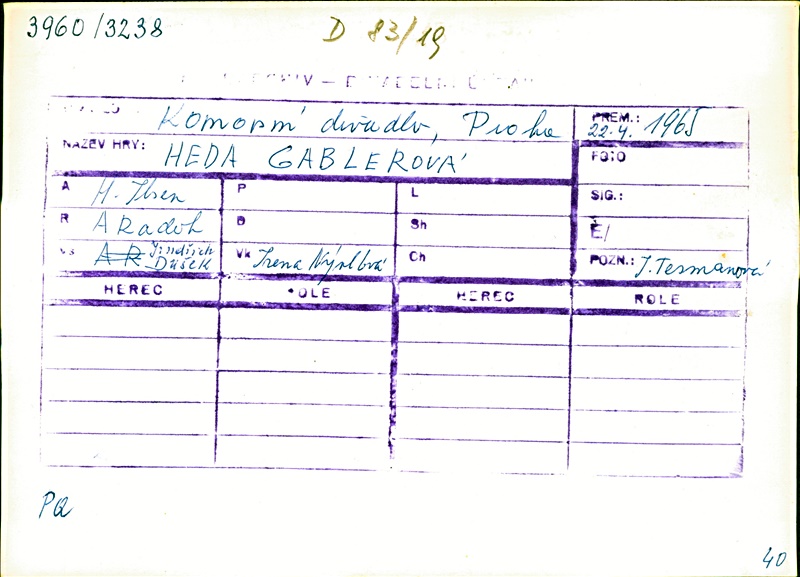 3960/3238
D 83/19
Komorní divadlo, Praha
PREM.: 22.4. 1965
NÁZEV HRY: HEDA GABLEROVÁ
FOTO
A H. Ibsen P L SIG.:
R A Radok D Sh Č/
Vs A R Jindřich Dušek Vk Irena Nývltová Ch POZN.: J. Tesmanová
HEREC ROLE HEREC ROLE
PQ
40